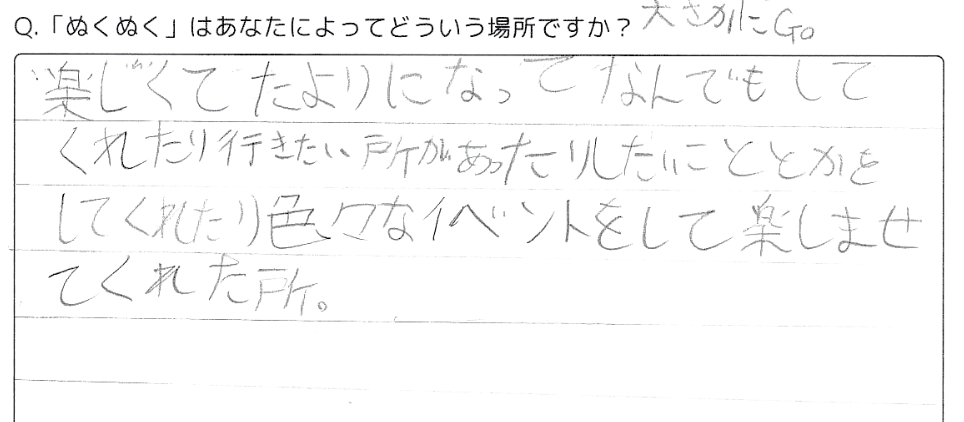 Q.「ぬくぬく」はあなたによってどういう場所ですか？大さかにGo
楽じくてたよりになってなんでもして
くれたり行きたい所があったりしたいこととかを
してくれたり色々なイベントをして楽しませ
てくれた所。